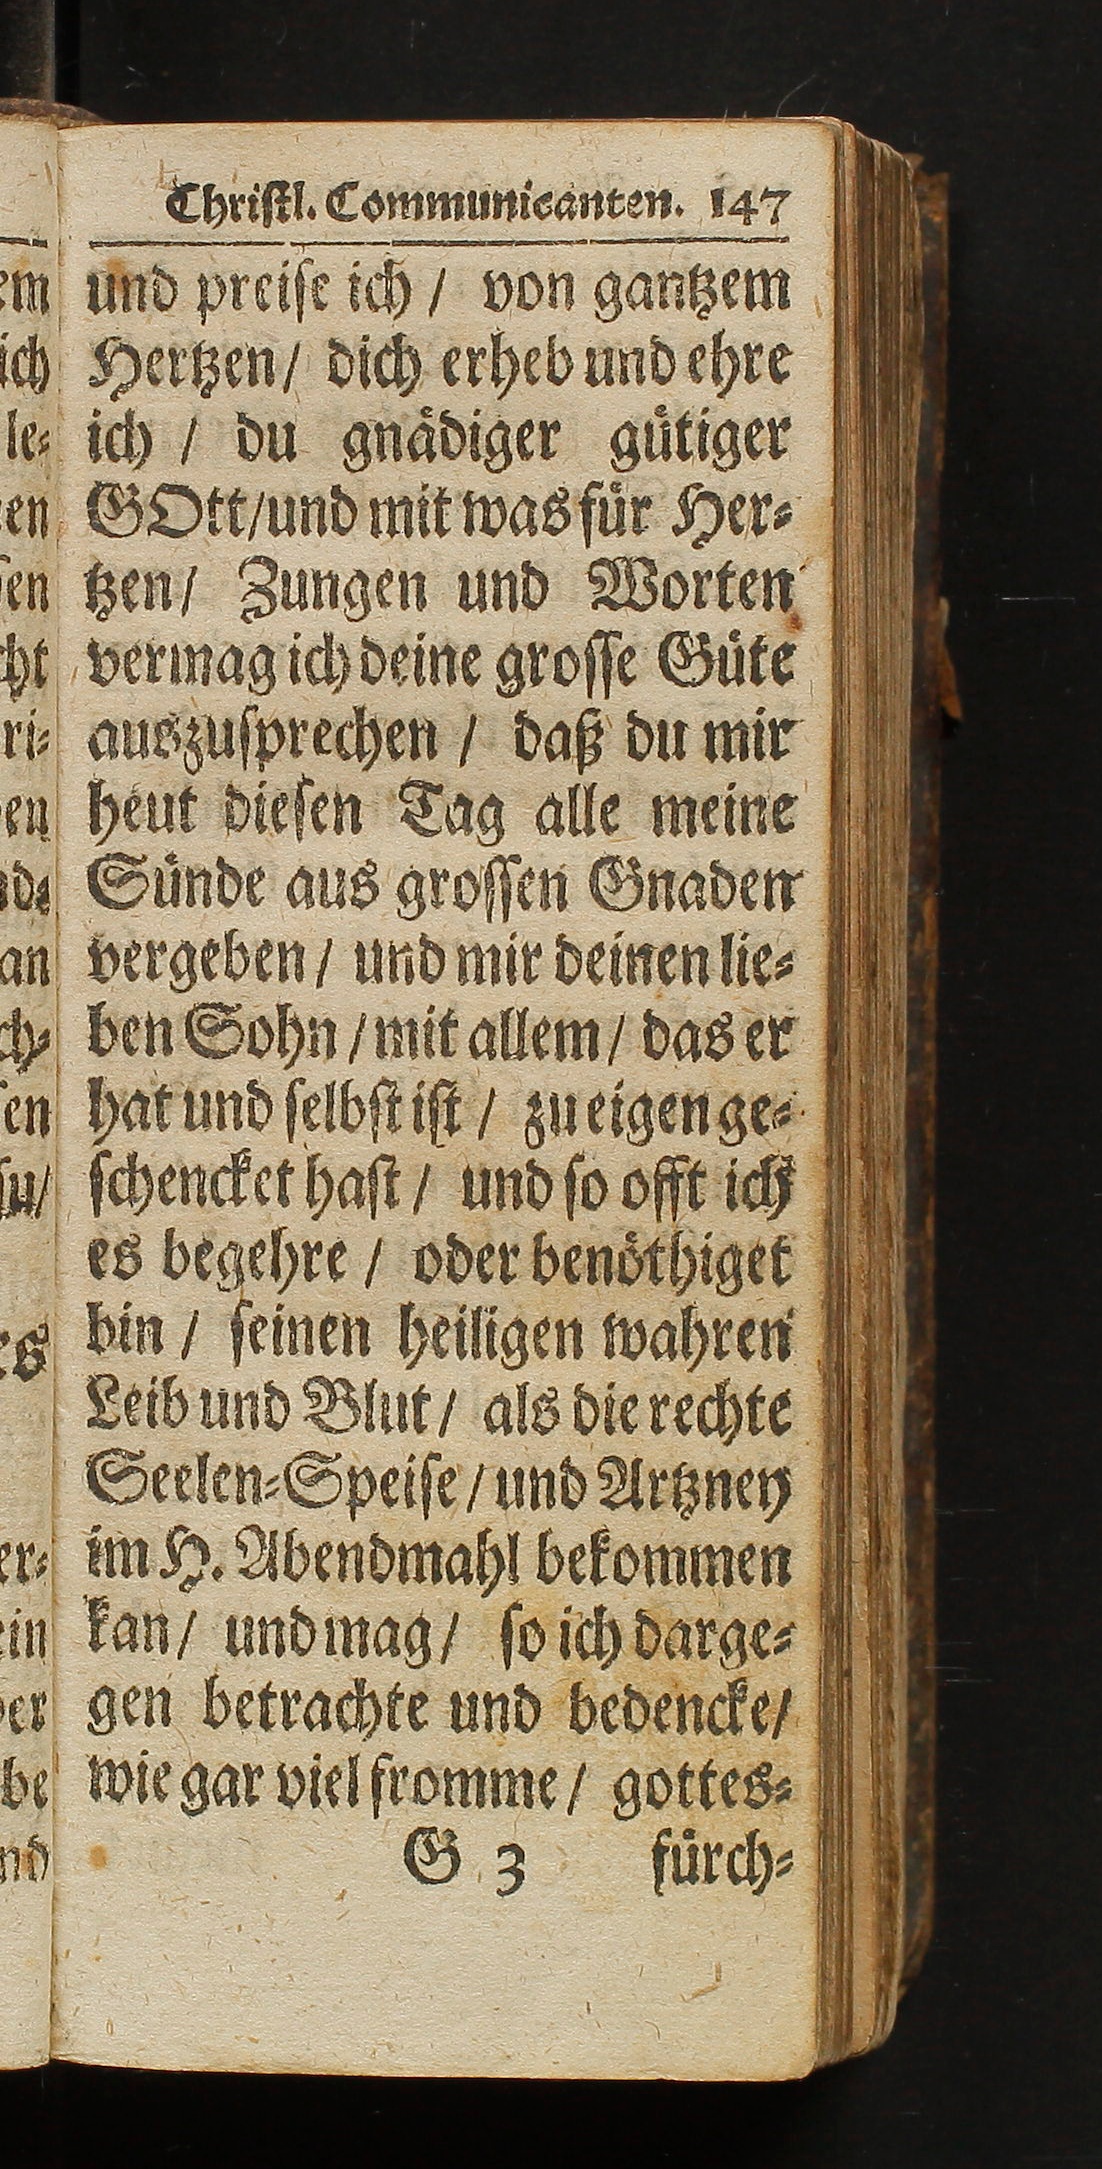 Christl. Communicanten. 147
und preise ich / von gantzem
Hertzen / dich erheb und ehre
ich / du gnaͤdiger guͤtiger
GOtt/und mit was fuͤr Her⸗
tzen/ Zungen und Worten
vermag ich deine grosse Guͤte
auszusprechen / daß du mir
heut diesen Tag alle meine
Suͤnde aus grossen Gnaden
vergeben / und mir deinen lie⸗
ben Sohn / mit allem / das er
hat und selbst ist / zu eigen ge⸗
schencket hast / und so offt ich
es begehre / oder benoͤthiget
bin / seinen heiligen wahren
Leib und Blut / als die rechte
Seelen⸗Speise / und Artzney
im H. Abendmahl bekommen
kan / und mag / so ich darge⸗
gen betrachte und bedencke/
wie gar viel fromme / gottes⸗
G 3 fuͤrch⸗